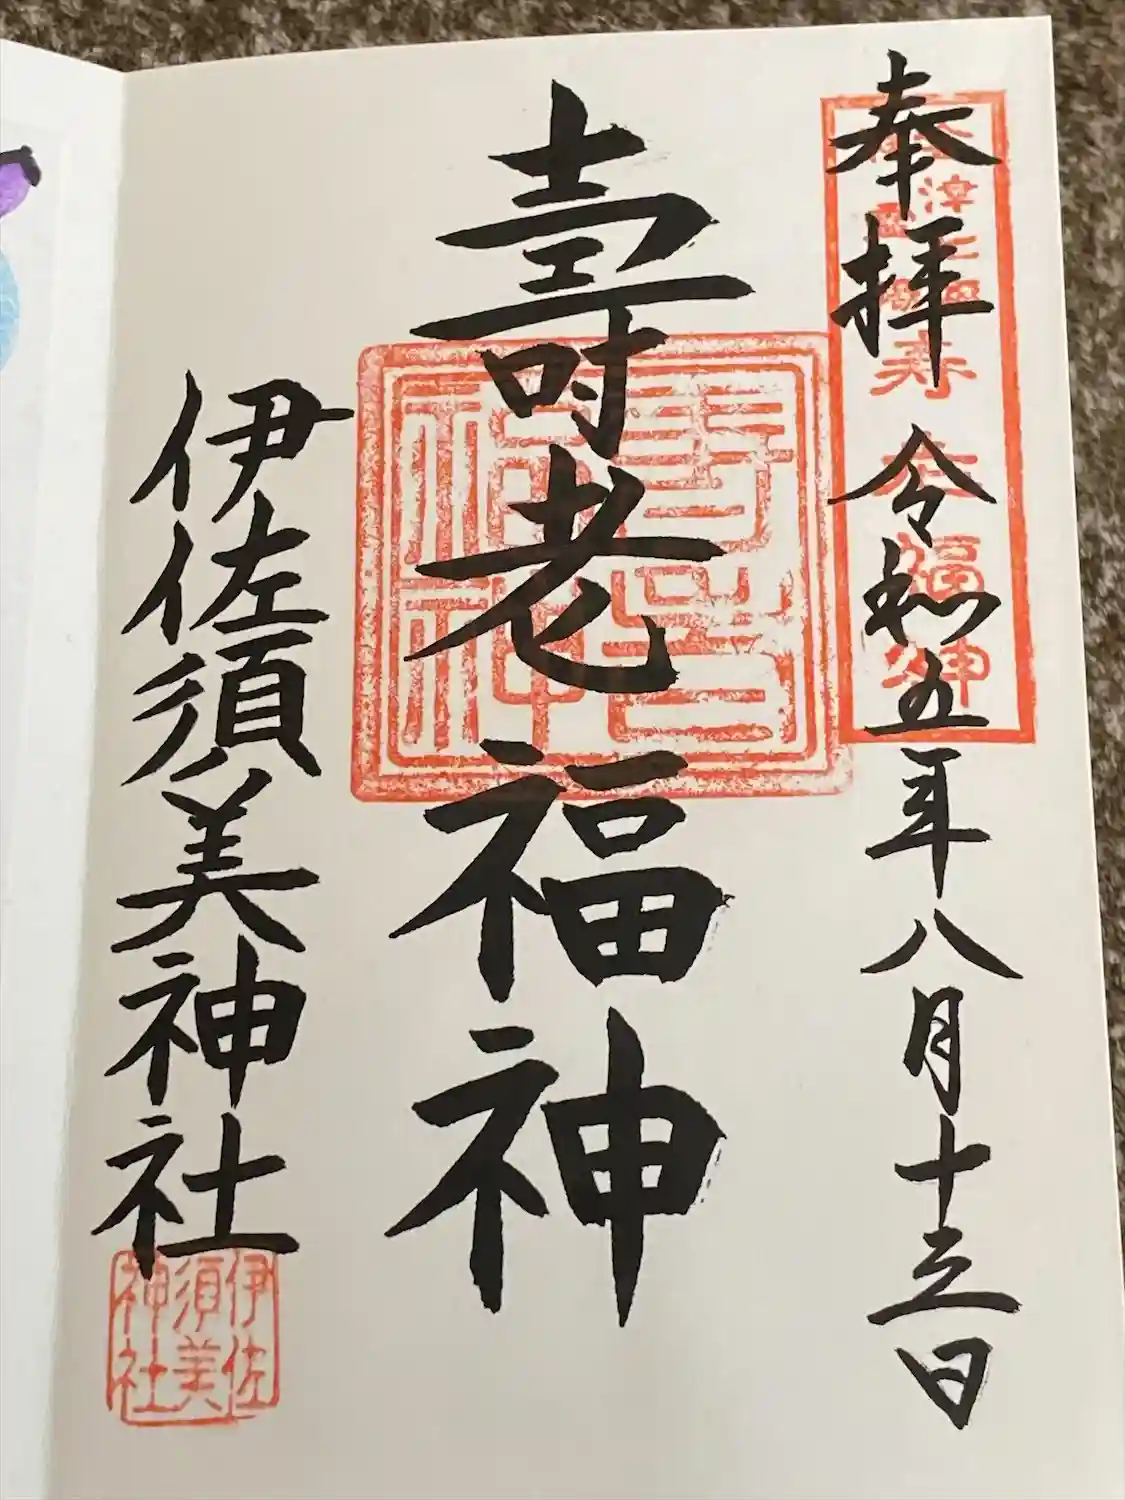 奉拝
令和五年八月十三日
会津七福神
寿老福神
壽老福神
壽老福神
伊佐須美神社
伊佐須美神社